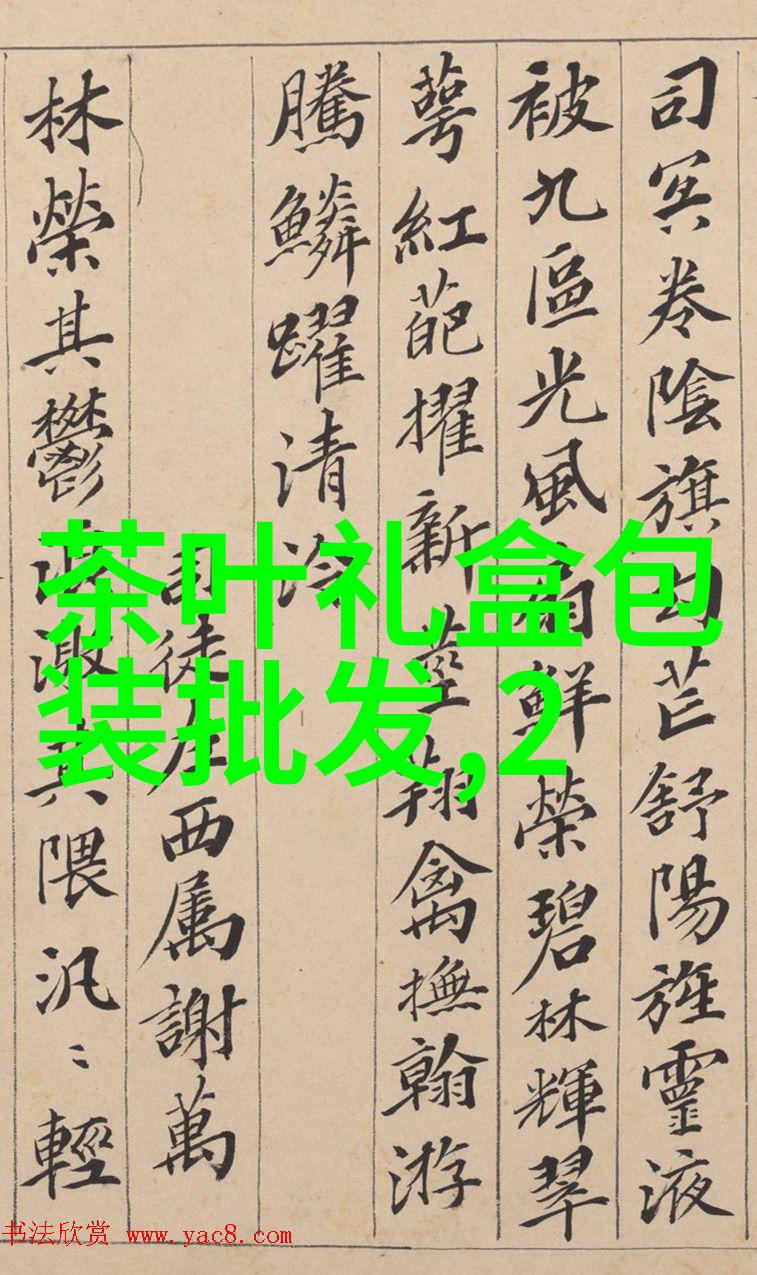 司冥卷陰旗勾芒舒陽旌靈液
被九區光風扇鮮榮碧林輝翠
萼紅葩擢新莖翔禽撫翰游
騰鱗躍清泠
司徒左西属謝萬
林榮其鬱浪激其隈汎〻輕
茶叶礼盒包
装批发,2
书法欣赏 www.yac8.com